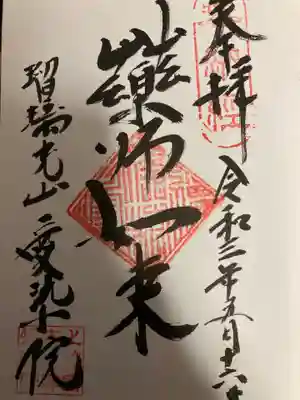 奉拝
令和三年五月十六日
藥師如来
瑠璃光山 愛染院